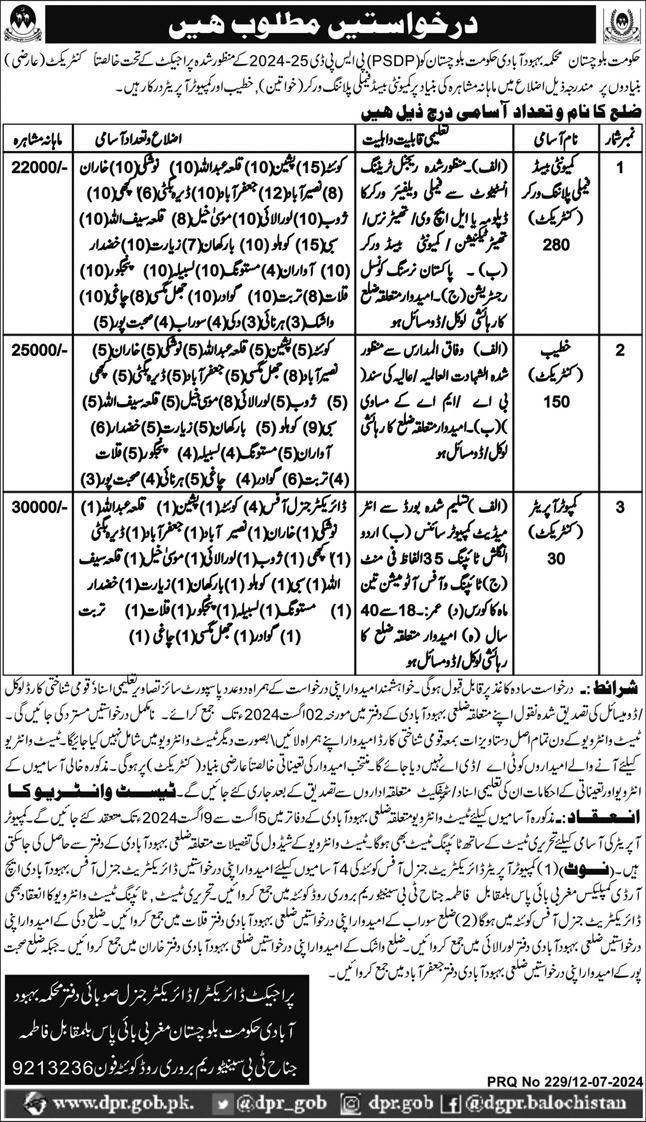 درخواستیں مطلوب ہیں
حکومت بلوچستان محکمہ بہبود آبادی حکومت بلوچستان کو (PSDP) پی ایس پی ڈی 25-2024 کے منظور شدہ پراجیکٹ کے تحت خالصتاً کنٹریکٹ (عارضی)
بنیادوں پر مندرجہ ذیل اضلاع میں ماہانہ مشاہرہ کی بنیاد پر کمیونٹی بیسڈ فیملی پلاننگ ورکر (خواتین)، خطیب اور کمپیوٹر آپریٹر درکار ہیں۔
ضلع کا نام و تعداد آسامی درج ذیل ہیں
نمبر شمار نام آسامی تعلیمی قابلیت و اہلیت اضلاع و تعداد آسامی ماہانہ مشاہرہ
1
کمیونٹی بیسڈ
فیملی پلاننگ ورکر
(کنٹریکٹ)
280
(الف)۔ منظور شدہ ریجنل ٹریننگ
انسٹیٹیوٹ سے فیملی ویلفیئر ورکر کا
ڈپلومہ یا ایل ایچ وی/ تھیٹر نرس/
تھیٹر ٹیکنیشن/ کمیونٹی بیسڈ ورکر
(ب)۔ پاکستان نرسنگ کونسل
رجسٹریشن (ج)۔ امیدوار متعلقہ ضلع
کا رہائشی لوکل/ ڈومسائل ہو
کوئٹہ (15) پشین (10) قلعہ عبداللہ (10) نوشکی (10) خاران
(8) نصیر آباد (12) جعفر آباد (10) ڈیرہ بگٹی (6) کچھی (10)
ژوب (10) لورالائی (10) موسیٰ خیل (8) قلعہ سیف اللہ (10)
سبی (15) کوہلو (10) بارکھان (7) زیارت (10) خضدار
(10) آواران (4) مستونگ (10) لسبیلہ (10) پنجگور (10)
قلات (8) تربت (10) گوادر (10) جھل مگسی (8) چاغی (10)
واشک (3) ہرنائی (3) دکی (4) سوراب (4) صحبت پور (5)
22000/-
2
خطیب
(کنٹریکٹ)
150
(الف) وفاق المدارس سے منظور
شدہ الشہادت العالمیہ/ عالیہ کی سند (
بی اے/ ایم اے کے مساوی
)(ب)۔ امیدوار متعلقہ ضلع کا رہائشی
لوکل/ ڈومسائل ہو
کوئٹہ (5) پشین (5) قلعہ عبداللہ (5) نوشکی (5) خاران (5)
نصیر آباد (8) جھل مگسی (5) جعفر آباد (5) ڈیرہ بگٹی (5) کچھی
(5) ژوب (5) لورالائی (8) موسیٰ خیل (5) قلعہ سیف اللہ (5)
سبی (9) کوہلو (5) بارکھان (5) زیارت (5) خضدار (6)
آواران (5) مستونگ (4) لسبیلہ (4) پنجگور (5) قلات
(4) تربت (6) گوادر (4) چاغی (5) ہرنائی (4) صحبت پور (3)
25000/-
3
کمپیوٹر آپریٹر
(کنٹریکٹ)
30
(الف) تسلیم شدہ بورڈ سے انٹر
میڈیٹ کمپیوٹر سائنس (ب) اردو
انگلش ٹائپنگ 35 الفاظ فی منٹ
(ج) ٹائپنگ و آفس آٹومیشن تین
ماہ کا کورس (د) عمر:۔ 18 سے 40
سال (ہ) امیدوار متعلقہ ضلع کا
رہائشی لوکل/ ڈومسائل ہو
ڈائریکٹر جنرل آفس (4) کوئٹہ (1) پشین (1) قلعہ عبداللہ (1)
نوشکی (1) خاران (1) نصیر آباد (1) جعفر آباد (1) ڈیرہ بگٹی
(1) کچھی (1) ژوب (1) لورالائی (1) موسیٰ خیل (1) قلعہ سیف
اللہ (1) سبی (1) کوہلو (1) بارکھان (1) زیارت (1) خضدار
(1) مستونگ (1) لسبیلہ (1) پنجگور (1) قلات (1) تربت
(1) گوادر (1) جھل مگسی (1) چاغی (1)
30000/-
شرائط:۔ درخواست سادہ کاغذ پر قابل قبول ہوگی۔ خواہشمند امیدوار اپنی درخواست کے ہمراہ دو عدد پاسپورٹ سائز تصاویر تعلیمی اسناد قومی شناختی کارڈ لوکل
/ ڈومیسائل کی تصدیق شدہ نقول اپنے متعلقہ ضلعی بہبود آبادی کے دفتر میں مورخہ 02 اگست 2024ء تک جمع کرائے۔ نامکمل درخواستیں مسترد کی جائیں گی۔
ٹیسٹ و انٹرویو کے دن تمام اصل دستاویزات بمعہ قومی شناختی کارڈ امیدوار اپنے ہمراہ لائیں بصورت دیگر ٹیسٹ و انٹرویو میں شامل نہیں کیا جائیگا ٹیسٹ و انٹرویو
کیلئے آنے والے امیدواروں کو ٹی اے/ ڈی اے نہیں دیا جائے گا۔ منتخب امیدوار کی تعیناتی خالصتاً عارضی بنیاد (کنٹریکٹ) پر ہوگی۔ مذکورہ خالی آسامیوں کے
انٹرویو اور تعیناتی کے احکامات ان کی تعلیمی اسناد/ سرٹیفکیٹ متعلقہ اداروں سے تصدیق کے بعد جاری کئے جائیں گے۔ ٹیسٹ و انٹریو کا
انعقاد:۔ مذکورہ آسامیوں کیلئے ٹیسٹ و انٹرویو متعلقہ ضلعی بہبود آبادی کے دفاتر میں 5 اگست سے 9 اگست 2024 تک منعقد کئے جائیں گے۔ کمپیوٹر
آپریٹر کی آسامی کیلئے تحریری ٹیسٹ کے ساتھ ٹائپنگ ٹیسٹ بھی ہوگا۔ ٹیسٹ و انٹرویو کے شیڈول کی تفصیلات متعلقہ ضلعی بہبود آبادی کے دفتر سے حاصل کی جاسکتی
ہیں۔ (نوٹ) (1) کمپیوٹر آپریٹر ڈائریکٹریٹ جنرل آفس کوئٹہ کی 4 آسامیوں کیلئے امیدوار اپنی درخواستیں ڈائریکٹریٹ جنرل آفس بہبود آبادی ایچ
آر ڈی کمپلیکس مغربی بائی پاس بلمقابل فاطمہ جناح ٹی بی سینیٹوریم بروری روڈ کوئٹہ میں جمع کروائیں۔ تحریری ٹیسٹ، ٹائپنگ ٹیسٹ و انٹرویو کا انعقاد بھی
ڈائریکٹریٹ جنرل آفس کوئٹہ میں ہوگا (2) ضلع سوراب کے امیدوار اپنی درخواستیں ضلعی بہبود آبادی دفتر قلات میں جمع کروائیں۔ ضلع دکی کے امیدوار اپنی
درخواستیں ضلعی بہبود آبادی دفتر لورالائی میں جمع کروائیں۔ ضلع واشک کے امیدوار اپنی درخواستیں ضلعی بہبود آبادی دفتر خاران میں جمع کروائیں۔ جبکہ ضلع صحبت
پور کے امیدوار اپنی درخواستیں ضلعی بہبود آبادی دفتر جعفر آباد میں جمع کروائیں۔
پراجیکٹ ڈائریکٹر/ ڈائریکٹر جنرل صوبائی دفتر محکمہ بہبود
آبادی حکومت بلوچستان مغربی بائی پاس بلمقابل فاطمہ
جناح ٹی بی سینیٹوریم بروری روڈ کوئٹہ فون 9213236
PRQ No 229/12-07-2024
www.dpr.gob.pk. @dpr_gob dpr.gob.pk @dgpr.balochistan